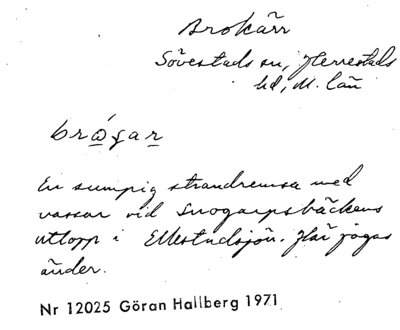 Brokärr
Sövestads sn, Herrestads
hd, M. län
brågar
En sumpig strandremsa med
vassar vid Snogarpsbäckens
utlopp i Ellestadsjön. Här jagas
änder.
Nr 12025 Göran Hallberg 1971